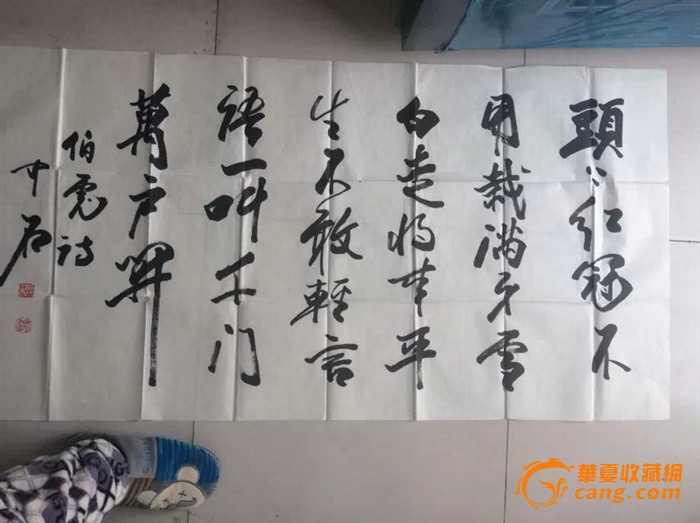 頭上红冠不
用裁满身雪
白走将来平
生不敢輕言
語一叫千门
萬户開
伯虎诗
中石
華夏收藏網
cang.com